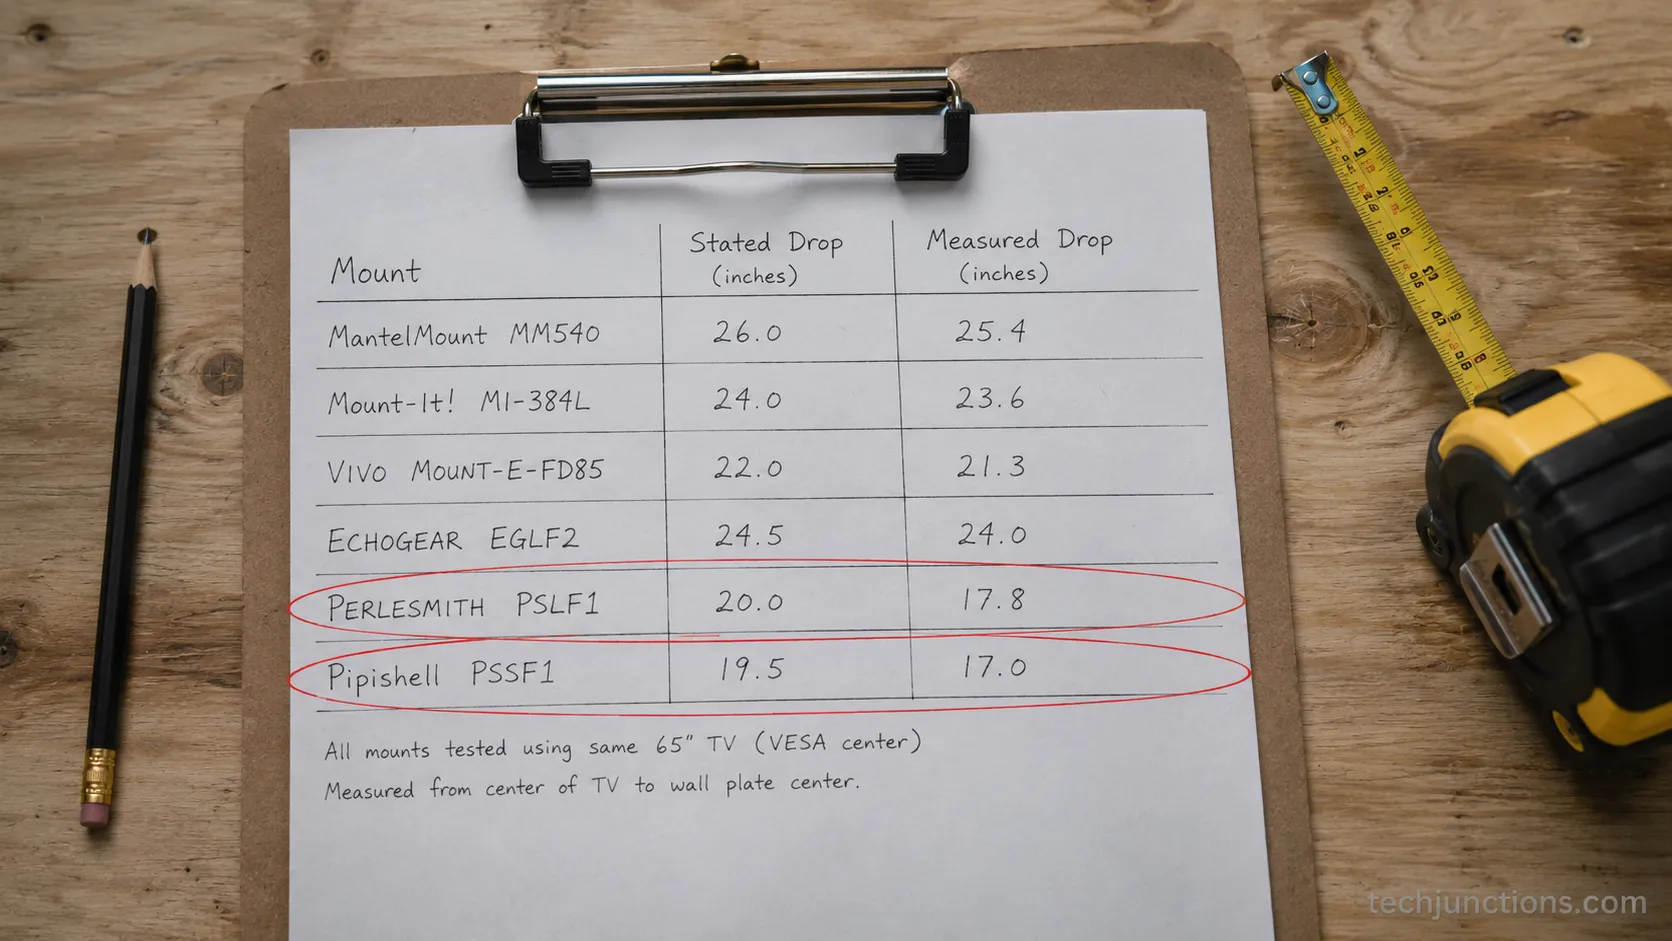 Mount Stated Drop (inches) Measured Drop (inches)
MantelMount MM540 26.0 25.4
Mount-It! MI-384L 24.0 23.6
VIVO MOUNT-E-FD85 22.0 21.3
ECHOGEAR EGLF2 24.5 24.0
PERLESMITH PSLF1 20.0 17.8
Pipishell PSSF1 19.5 17.0
All mounts tested using same 65" TV (VESA center)
Measured from center of TV to wall plate center.
techjunctions.com